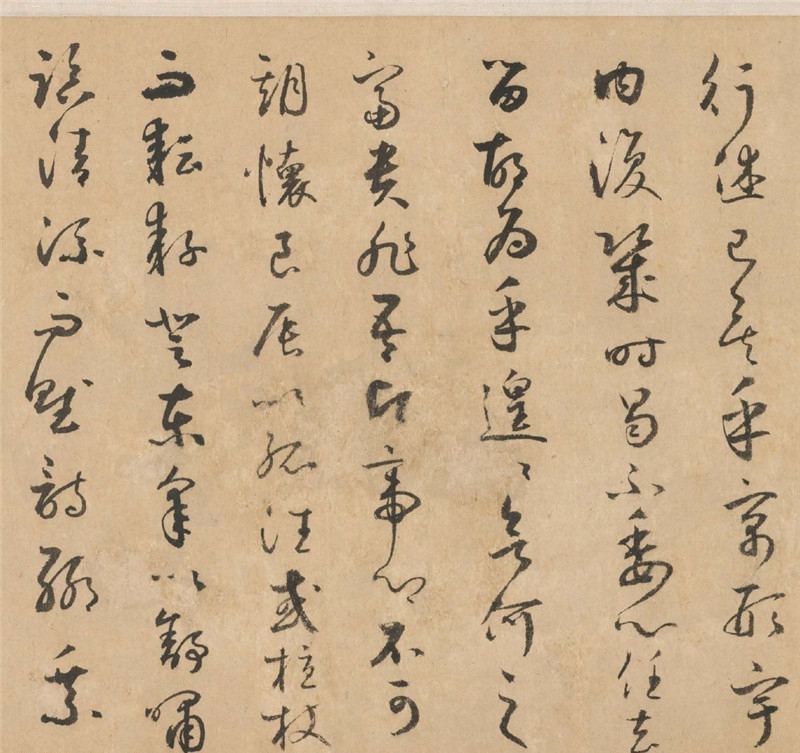 行已矣乎寓形宇
内復幾時曷不委心任去
留胡為乎遑〻何之
富貴非吾願帝鄉不可
期懷良辰以孤往或植杖
而耘耔登東皋以舒嘯
臨清流而賦詩聊乘